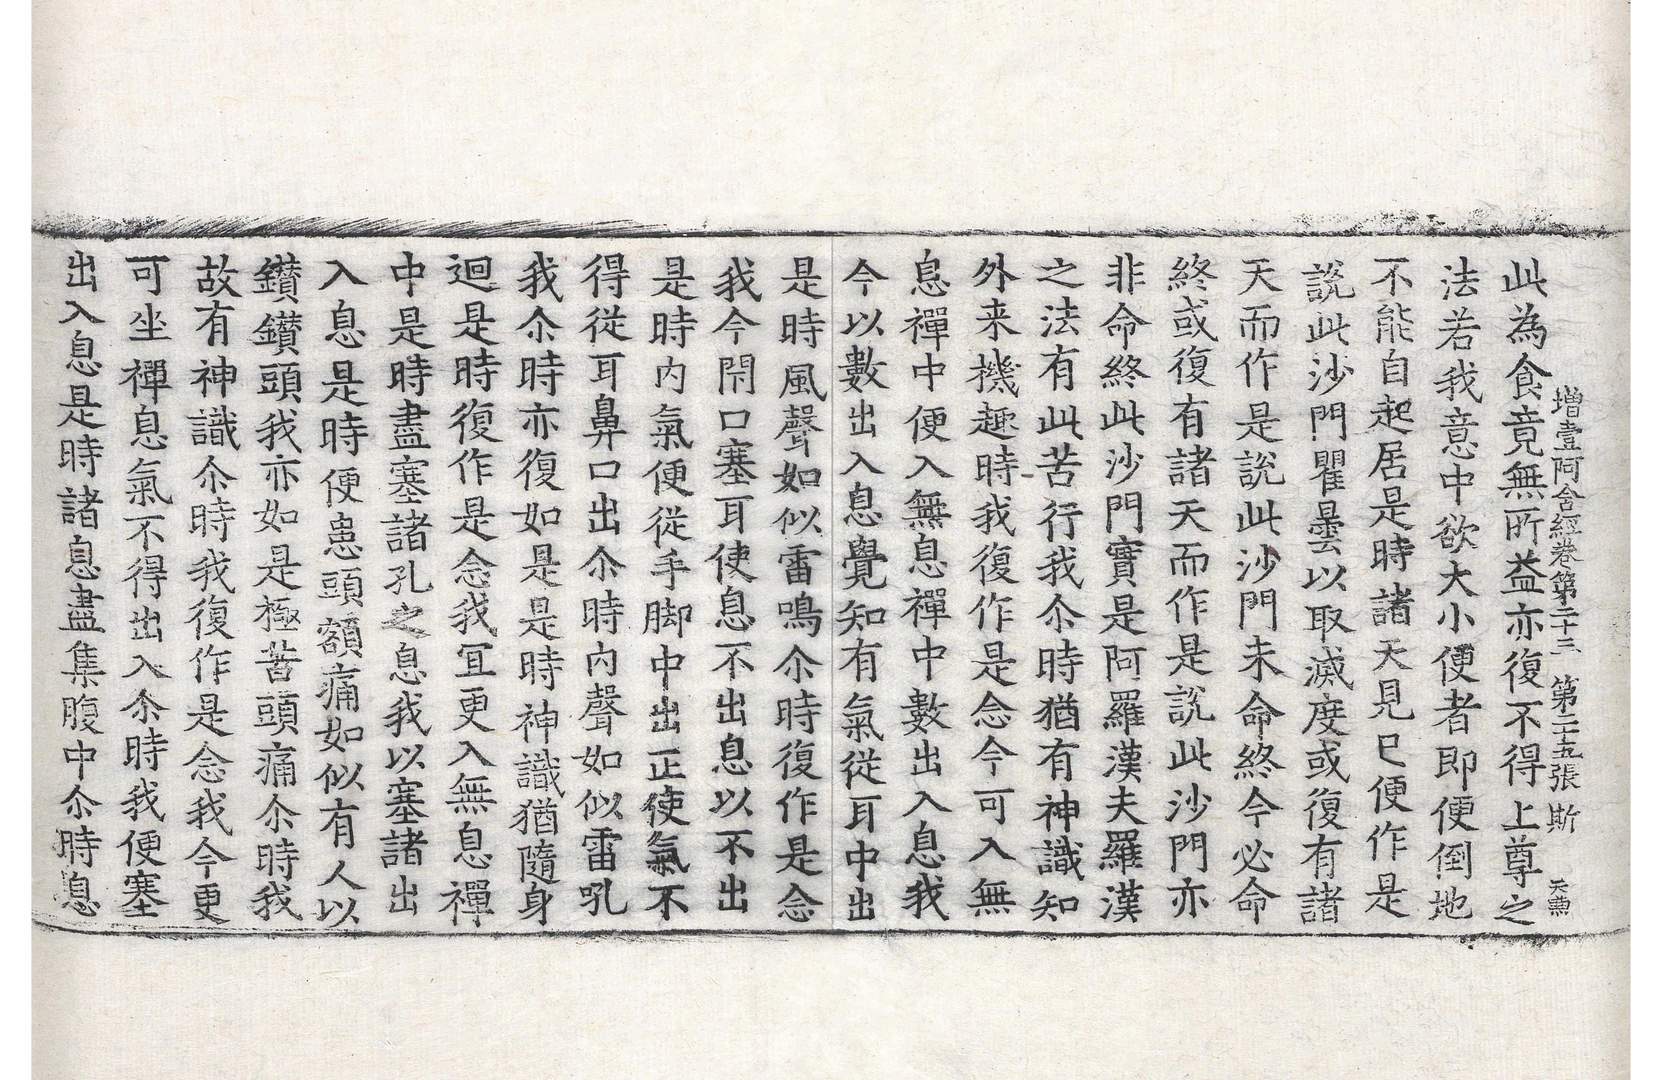 增壹阿含經卷第二十三 第二十五張 斯
此為食竟無所益亦復不得上尊之
法若我意中欲大小便者即便倒地
不能自起居是時諸天見已便作是
說此沙門瞿曇以取滅度或復有諸
天而作是說此沙門未命終今必命
終或復有諸天而作是說此沙門亦
非命終此沙門實是阿羅漢夫羅漢
之法有此苦行我尒時猶有神識知
外来機趣時我復作是念今可入無
息禪中便入無息禪中數出入息我
今以數出入息覺知有氣從耳中出
是時風聲如似雷鳴尒時復作是念
我今閇口塞耳使息不出息以不出
是時內氣便從手脚中出正使氣不
得從耳鼻口出尒時內聲如似雷吼
我尒時亦復如是是時神識猶隨身
迴是時復作是念我冝更入無息禪
中是時盡塞諸孔之息我以塞諸出
入息是時便患頭額痛如似有人以
鑚鑚頭我亦如是極苦頭痛尒時我
故有神識尒時我復作是念我今更
可坐禪息氣不得出入尒時我便塞
出入息是時諸息盡集腹中尒時息